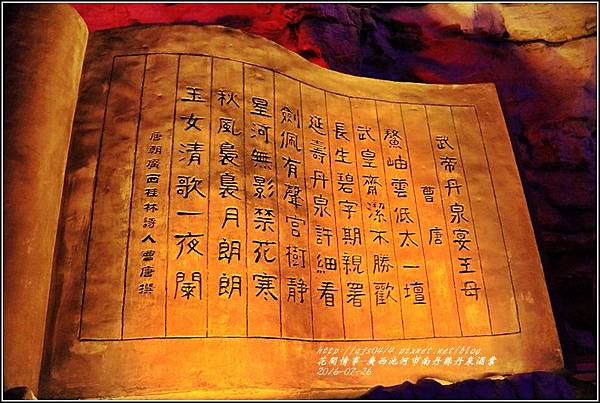 武帝丹泉宴王母
曹唐
鰲岫雲低太一壇
武皇齋潔不勝歡
長生碧字期親署
延壽丹泉許細看
劍佩有聲宮樹靜
星河無影禁花寒
秋風裊裊月朗朗
玉女清歌一夜闌
唐朝廣西桂林詩人曹唐撰
http://ajs0414.pixnet.net/blog
花間情事-廣西池河市南丹縣丹泉酒業
2016-07-26